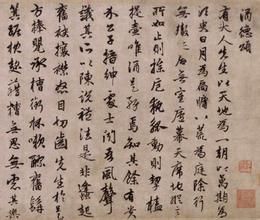 酒德頌
有大人先生以天地為一朝以萬期為
須臾日月為扃牖八荒為庭除行
無轍迹居無室廬幕天席地縱意
所如止則操卮執觚動則挈榼
提壺唯酒是務焉知其餘有貴
介公子搢紳處士聞吾風聲
議其所以陳說禮法是非鋒起
奮袂攘襟怒目切齒先生於是
方捧甖承槽銜杯漱醪奮髯
箕踞枕麴藉糟無思無慮其樂